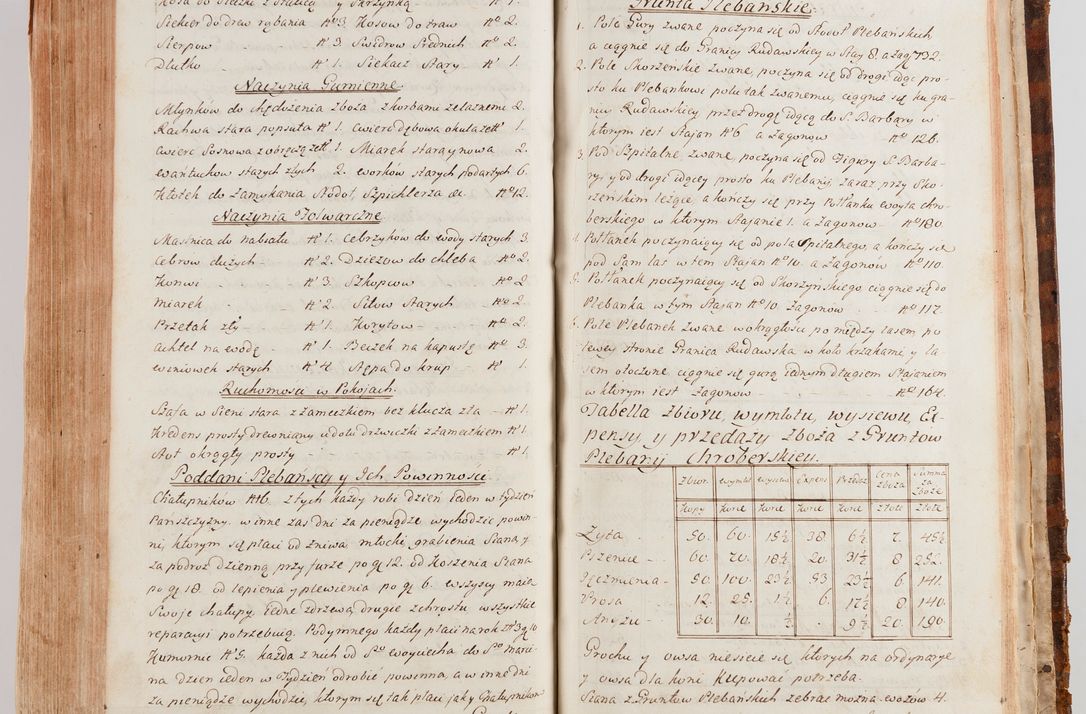 Siekier do drew rąbania N° 3. Kosow do traw N° 2.
Sierpow - N° 3. Swidrow Srednich N° 2.
Dlutko - N° 1. Siekacz Stary - N° 1.
Naczynia Gumienne.
Młynków do Chędożenia zboża z korbami żelaznemi 2.
Rachwa stara popsuta N° 1. Cwierc dębowa okuta N° 1.
Cwierc Sosnowa z obręczą N° 1. Miarek staraynowa 2.
Wańtuchow starych złych 2. Workow starych podartych 6.
Kłotek do zamykania Stodoł, Szpichlerza &c. N° 12.
Naczynia Folwarczne
Masnica do nabiału N° 1. Cebrzyków do wody starych 3.
Cebrow dużych - N° 2. Dziezow do chleba N° 2.
Konwi - N° 3. Szkopcow N° 2
Miarek - N° 2. Sitow Starych N° 2.
Przetak zły - N° 1. Korytow - N° 2.
Achtel na wodę - N° 1. Beczek na kapustę N° 3
Winiowek starych N° 4. Stępa do krup - N° 1.
Ruchomości w Pokojach.
Szafa w Sieni stara z zameczkiem bez klucza zła - N° 1.
Kredens prosty drewniany, u dołu drzwiczki z zameczkiem N° 1
Stoł okrągły prosty - N° 1.
Poddani Plebańscy y Ich Powinności
Chałupników N° 16. z tych każdy robi dzień ieden w tydzień
Panszczyzny. w inne zas dni za pieniądze wychodzic powin-
ni, ktorym się płaci od żniwa młocki, grabienia Siana y
za podroż dzienną przy furze po gl 12. od Koszenia Siana
po gl 18. od lepienia y plewienia po gl 6. wszyscy maią
Swoje chałupy, iedne zdrzewa, drugie z chrostu, wszystkie
reparacyi potrzebuią. Podymnego każdy płaci na rok
Komornic N° 5. każda z nich od S° Woyciecha do S° Marci-
na dzien ieden w Tydzień odrobic powinna, a w inne dni
za pieniądze wychodzic, ktorym się tak płaci jak y Chałupnikom
Grunta Plebańskie.
1. Pole Gury zwane poczyna się od Stodoł Plebańskich
a ciągnie się do Granicy Rudawskiey w Stay 8. a Zag 732.
2. Pole Skorzeńskie zwane, poczyna się od drogi idąc pro-
sto ku Plebankowi polu tak zwanemu, ciągnie się ku gra-
nicy Rudawskiey przez drogę idącą do S. Barbary w
ktorym iest Stajan N° 6 a Zagonow N° 126.
3. Pod Szpitalne zwane, poczyna się od Figury S. Barba-
ry, y od drogi idącey prosto ku Plebanij, zaraz przy Sko-
rzeńskim leżące, a kończy się przy Potłanku woyta chro-
berskiego w ktorym Stajanie 1. a Zagonow - N° 180.
4. Potłanek poczynaiący się od pola Spitalnego, a kończy się
pod Sam las w tem Stajan N° 10. a Zagonów N° 110.
5. Potłanek poczynaiący się od Skorzyńskiego ciągnie się do
Plebanka w tym Stajan N° 10. Zagonów N° 117.
6. Pole Plebanek zwane w okrągłosci po między lasem po
lewey stronie Granica Rudawska w koło krzakami, y la-
sem otoczone ciągnie się gurą iednym długiem Stajaniem
w ktorym iest Zagonow N° 164.
Tabella zbioru, wymłotu, wysiewu, Ex-
pensy, y przedaży zboża z Gruntow
Plebanij Chroberskiey.
Zbior. Wymłot Wysiew Expens Przedaż Cena zboża Summa za zboże
Kopy Korce Korce Korce Korce Złote Złote
Żyta - 50. 60. 15½ 38 6½ 7. 45½
Pszenice - 60. 70. 18½ 20. 31½ 8 252.
Jęczmienia - 50. 100. 23½ 53 23½ 6 141.
Prosa - 12. 25. 1½ 6. 17½ 8 140.
Anyżu - 30. 10. ½ . 9½ 20. 190.
Grochu y owsa niesieie się, ktorych na ordynaryę
y owsa dla koni kupować potrzeba.
Siana z Gruntow Plebańskich zebrac można wozów 4.